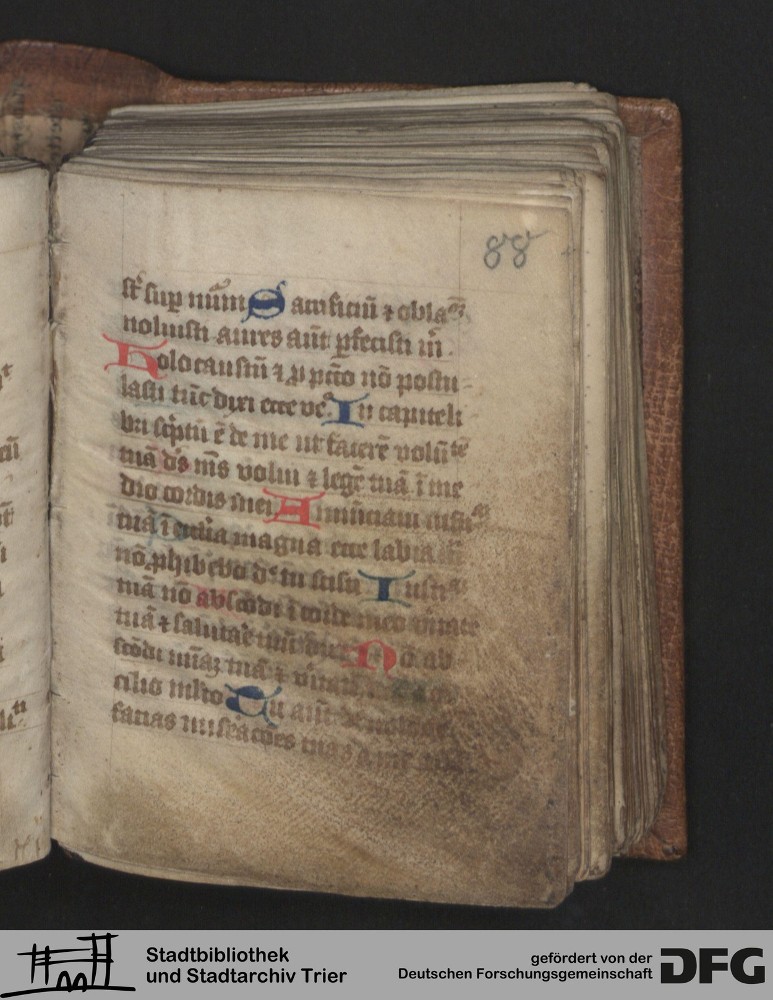 88
st̄ sup nūm Sacrificiū ⁊ obla
noluisti aures aūt ꝑfecisti m̄
Holocaustū ⁊ ꝓ pctō nō postu
lasti tūc dixi ecce ve In capiteli
bri scͥptū ē de me ut facerē volūtē
tuā ds ms volui ⁊ legē tuā ī me
dio cordis mei Annūciaui iusti
tuā ī ecclia magna ecce labia
nō ꝓhibebo dn tu scisti Iusti
tuā nō abscōdi ī corde meo
tuā ⁊ salutare Nō ab
scōdi tuā ⁊
cilio mlto Tu aūt dn
facias miseracōes tuas a me
Stadtbibliothek
und Stadtarchiv Trier
gefördert von der
Deutschen Forschungsgemeinschaft DFG